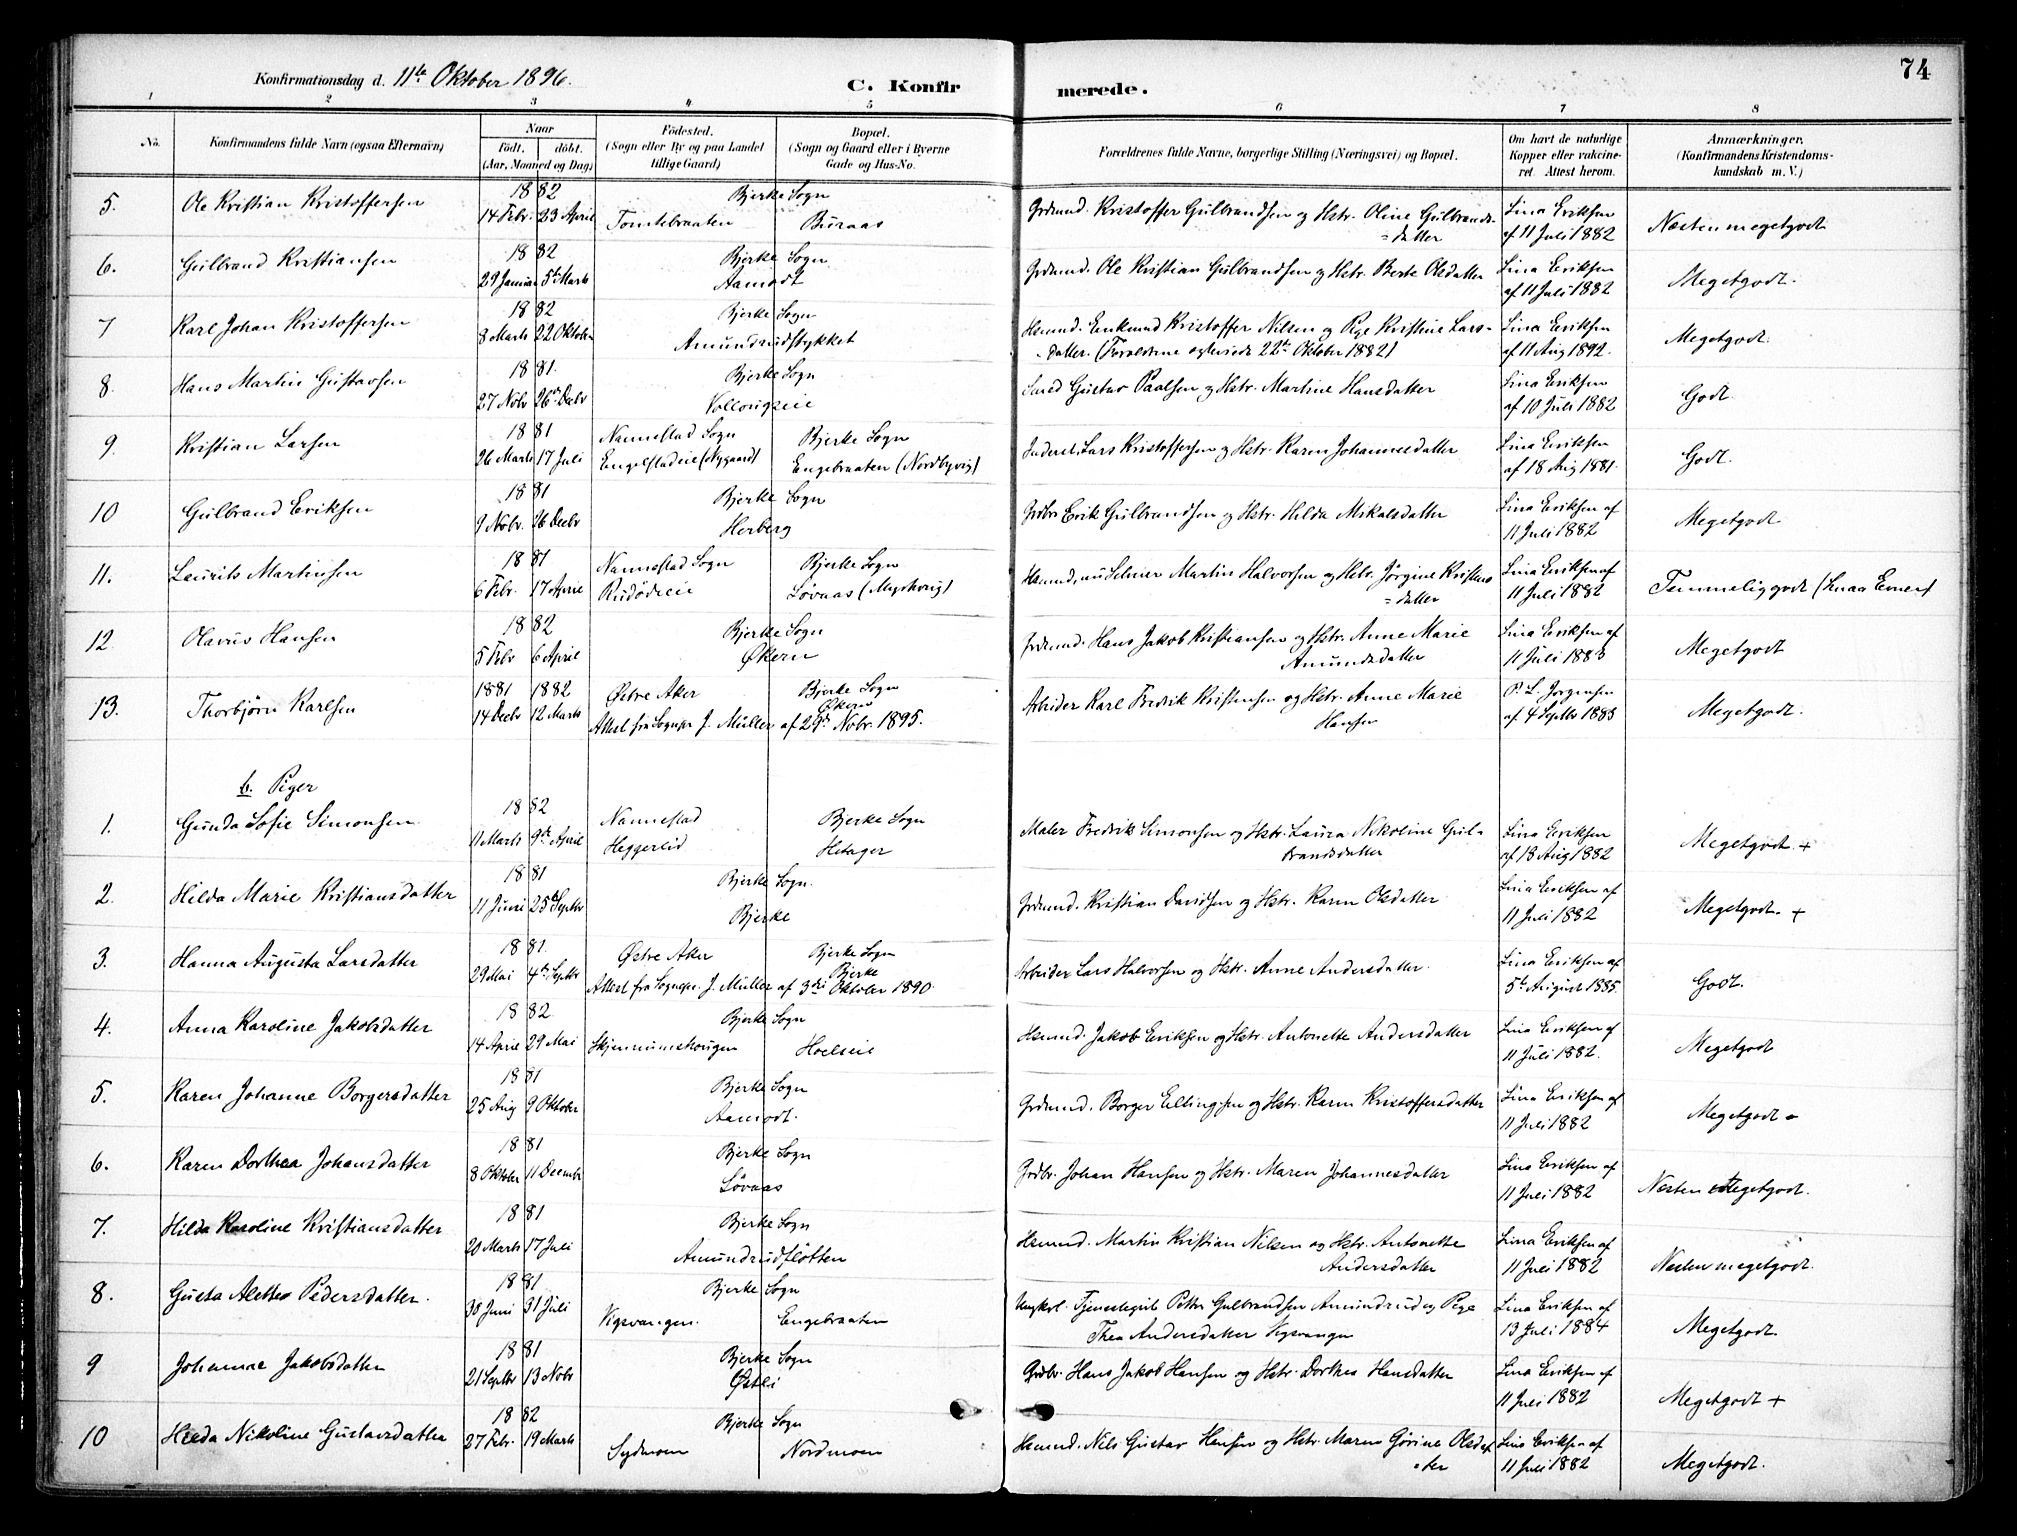 74
Konfirmationsdag d. 11te Oktober 1896.
C. Konfirmerede.
1 2 3 4 5 6 7 8
No. Konfirmandens fulde Navn (ogsaa Efternavn) Naar Født. døbt. (Aar, Maaned og Dag) Fødested. (Sogn eller By og paa Landet tillige Gaard) Bopæl. (Sogn og Gaard eller i Byerne Gade og Hus-No. Forældrenes fulde Navne, borgerlige Stilling (Næringsvei) og Bopæl. Om havt de naturlige Kopper eller vakcineret. Attest herom. Anmærkninger. (Konfirmandens Kristendomskundskab m. V.)
5. Ole Kristian Kristoffersen 1882 14 Febr. 23 April Bjerke Sogn Tomtebraaten Buraas Grdmnd. Kristoffer Gulbrandsen og Hstr. Oline Gulbrands=datter Lina Eriksen af 11 Juli 1882 Næsten megetgodt
6. Gulbrand Kristiansen 1882 29 Januar 5te Marts Bjerke Sogn Aamodt Grdmnd. Ole Kristian Gulbrandsen og Hstr. Berte Olsdatter Lina Eriksen af 11 Juli 1882 Megetgodt.
7 Karl Johan Kristoffersen 1882 8 Marts 22 Oktober Bjerke Sogn Amundrudstykket Hsmnd. Enkemd Kristoffer Nilsen og Pige Kristine Lars-datter. (Forældrene egteviede 22de Oktober 1882) Lina Eriksen af 11 Aug 1892. Megetgodt.
8. Hans Martin Gustavsen 1881. 27 Novbr 26de Decbr Bjerke Sogn Vollaugseie Smed Gustav Paalsen og Hstr. Martine Hansdatter Lina Eriksen af 10 Juli 1882 Godt.
9. Kristian Larsen 1881 26 Marts 17 Juli Nannestad Sogn Engelstadeie (Nygaard) Bjerke Sogn Engebraaten (Nordbyvig) Inderst. Lars Kristoffersen og Hstr. Karen Johannesdatter Lina Eriksen af 18 Aug 1881. Godt.
10 Gulbrand Eriksen 1881 9 Novbr. 26 Decbr Bjerke Sogn Herberg Grdbr Erik Gulbrandsen og Hstr. Hilda Mikalsdatter Lina Eriksen af 11 Juli 1882 Megetgodt
11. Laurits Martinsen 1881 6 Febr. 17 April Nannestad Sogn Rudødeie Bjerke Sogn Løvaas (Myrhvig) Hsmnd, nu Selveier Martin Halvorsen og Hstr. Jørgine Kristens=datter Lina Eriksen af 11 Juli 1882 Temmeliggodt (smaa Evner)
12. Olavus Hansen 1882 5 Febr 6 April Bjerke Sogn Økern Grdmnd. Hans Jakob Kristiansen og Hstr. Anne Marie Amundsdatter Lina Eriksen af 11 Juli 1883 Megetgodt
13. Thorbjørn Karlsen 1881 14 Decbr 1882 12 Marts Østre Aker Bjerke Sogn Økern Attest fra Sognepr. J. Müller af 29de Novbr. 1895. Arbeider Karl Fredrik Kristensen og Hstr. Anne Marie Hansen P. L. Jørgensen af 4 Septbr 1883 Megetgodt.
b. Piger
1. Gunda Sofie Simonsen 1882 11 Marts 9de April Nannestad Heggerlid Bjerke Sogn Hetager Maler Fredrik Simonsen og Hstr. Laura Nikoline Gul=brandsdatter Lina Eriksen af 18 Aug 1882 Megetgodt. +
2. Hilda Marie Kristiansdatter 1881 11 Juni 25de Septbr Bjerke Sogn. Bjerke Grdmnd. Kristian Davidsen og Hstr. Karen Olsdatter Lina Eriksen af 11 Juli 1882 Megetgodt. +
3. Hanna Augusta Larsdatter 1881. 29 Mai 4de Septbr Østre Aker Bjerke Sogn Bjerke Attest fra Sognepr. J. Müller af 3die Oktober 1890. Arbeider Lars Halvorsen og Hstr. Anne Andersdatter. Lina Eriksen af 5te August 1885. Godt.
4. Anna Karoline Jakobsdatter 1882 14 April 29 Mai Bjerke Sogn Skjennumshaugen Hoelseie Hsmnd. Jakob Eriksen og Hstr. Antonette Andersdatter Lina Eriksen af 11 Juli 1882. Megetgodt
5. Karen Johanne Borgersdatter 1881 25 Aug 9 Oktober Bjerke Sogn Aamodt. Grdmnd. Borger Ellingsen og Hstr. Karen Kristoffersdatter Lina Eriksen af 11 Juli 1882 Megetgodt
6. Karen Dorthea Johansdatter 1881 8 Oktober 11 Decembr Bjerke Sogn Løvaas Grdbr. Johan Hansen og Hstr. Maren Johannesdatter Lina Eriksen af 11 Juli 1882 Næsten Megetgodt.
7. Hilda Karoline Kristiansdatter 1881 20 Marts 17 Juli Bjerke Sogn Amundrudfløtten Hsmnd. Martin Kristian Nilsen og Hstr. Antonette Andersdatter Lina Eriksen af 11 Juli 1882 Næsten megetgodt.
8. Gusta Alettea Pedersdatter. 1881. 30 Juni 31 Juli Bjerke Sogn Vigsvangen. Engebraaten Ungkrl. Tjenestegut Petter Gulbrandsen Amundrud og Pige Thea Andersdatter Vigsvangen Lina Eriksen af 13 Juli 1884 Megetgodt.
9 Johanne Jakobsdatter 1881 21 Septbr 13 Novbr Bjerke Sogn Østli Grdbr. Hans Jakob Hansen og Hstr. Dorthea Hansdatter Lina Eriksen af 11 Juli 1882 Megetgodt +
10 Hilda Nikoline Gustavsdatter 1882 27 Febr. 19 Marts Bjerke Sogn Sydmoen Nordmoen Hsmnd. Nils Gustav Hansen og Hstr. Maren Gørine Olsdat=ter Lina Eriksen af 11 Juli 1882 Megetgodt.